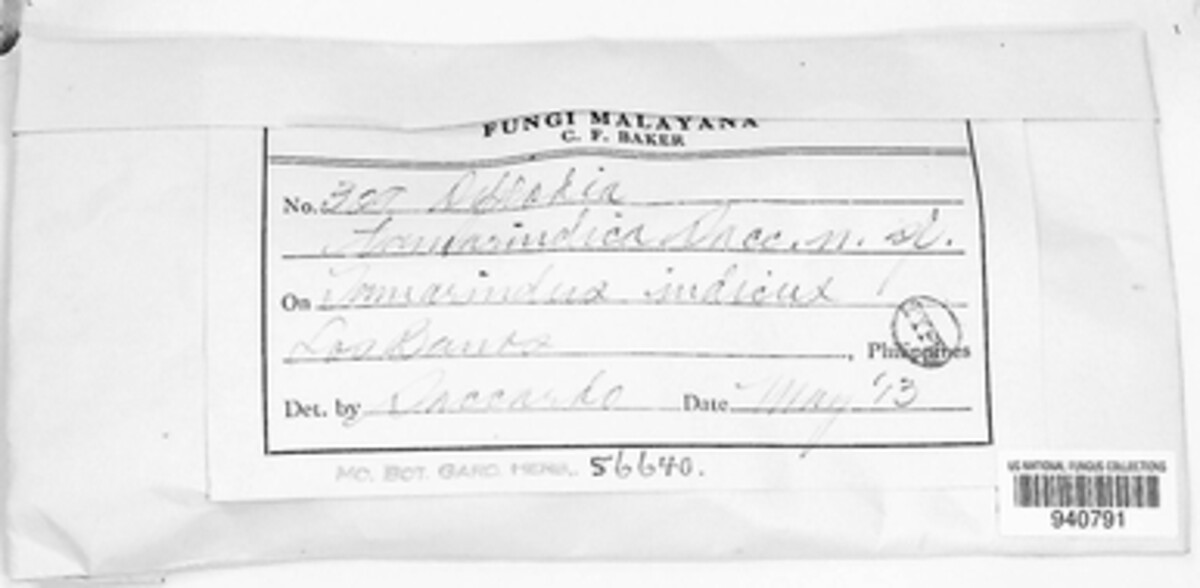 FUNGI MALAYANA
C. F. BAKER
No. 307
Tamarindica Sacc. n. sp.
On Tamarindus indicus
Los Banos, Philippines
Det. by Saccardo Date May '13
MO. BOT. GARD. HERB. 56640.
US NATIONAL FUNGUS COLLECTIONS
940791